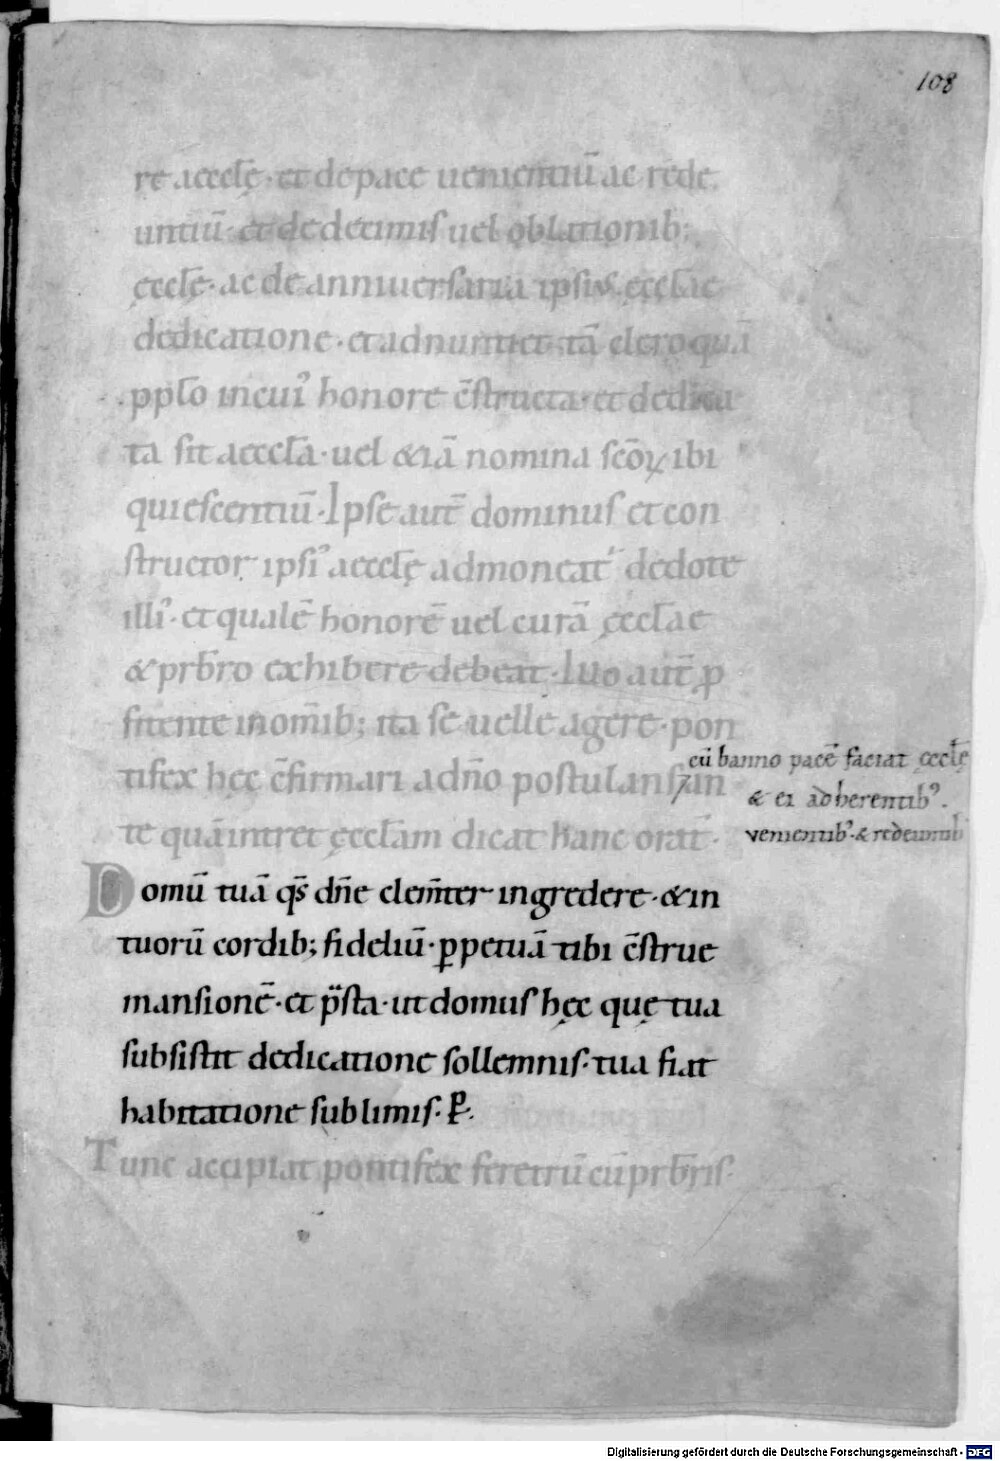 108
re aeccłę · et de pace uenientiū ac rede
untiū · et de decimis uel oblationib;
ęccłę · ac de anniuersaria ipsius ęccłae
dedicatione · et adnuntiet tā clero quā
ppło in cui᾽ honore c̄structa · et dedica
ta sit aeccła · uel &iā nomina scōꝝ ibi
quiescentiū · Ipse aut̄ dominus et con
structor ipsi᾽ aeccłę admoneat᾽ de dote
illi᾽ · et qualē honorē uel curā ęccłae
& prƀro exhibere debeat · Illo aut̄ ꝓ
fitente in om̄ib; ita se uelle agere · pon
tifex hęc c̄firmari a dn̄o postulans / an
cū banno pacē faciat ęccłę
& ei adherentib᾽ .
venientib᾽ · & redeuntib
te quā intret ęccłam dicat hanc orat̄ ·
Domū tuā qs̄ dn̄e clem̄ter ingredere · & in
tuorū cordib; fideliū · ꝑpetuā tibi c̄strue
mansionē · et p̄sta · ut domus hęc quę tua
subsistit dedicatione sollemnis · tua fiat
habitatione sublimis · P̱.
Tunc accipiat pontifex feretrū cū prƀris ·
Digitalisierung gefördert durch die Deutsche Forschungsgemeinschaft - DFG